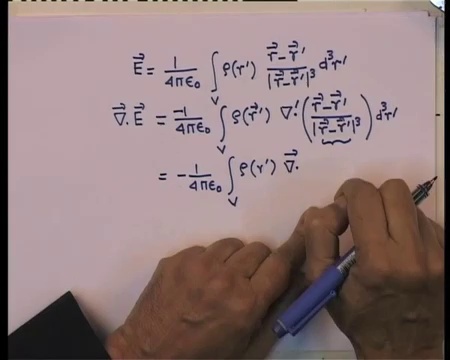 \vec{E} = \frac{1}{4\pi\epsilon_0} \int_V \rho(r') \frac{\vec{r}-\vec{r}'}{|\vec{r}-\vec{r}'|^3} d^3r'
\vec{\nabla}.\vec{E} = \frac{-1}{4\pi\epsilon_0} \int_V \rho(\vec{r}') \nabla'. \left( \frac{\vec{r}-\vec{r}'}{|\vec{r}-\vec{r}'|^3} \right) d^3r'
= -\frac{1}{4\pi\epsilon_0} \int_V \rho(r') \vec{\nabla}.